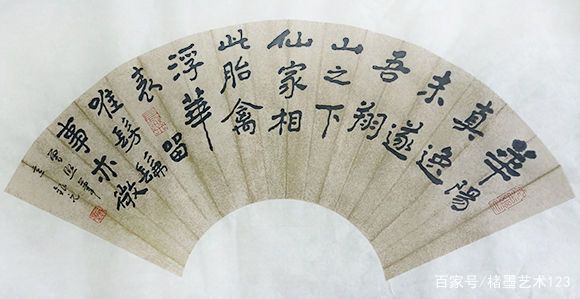 華陽
真逸
未遂
吾翔
山之下
仙家相
此胎禽
浮華
表留
唯髣髴
事亦微
百家号/楮墨艺术123